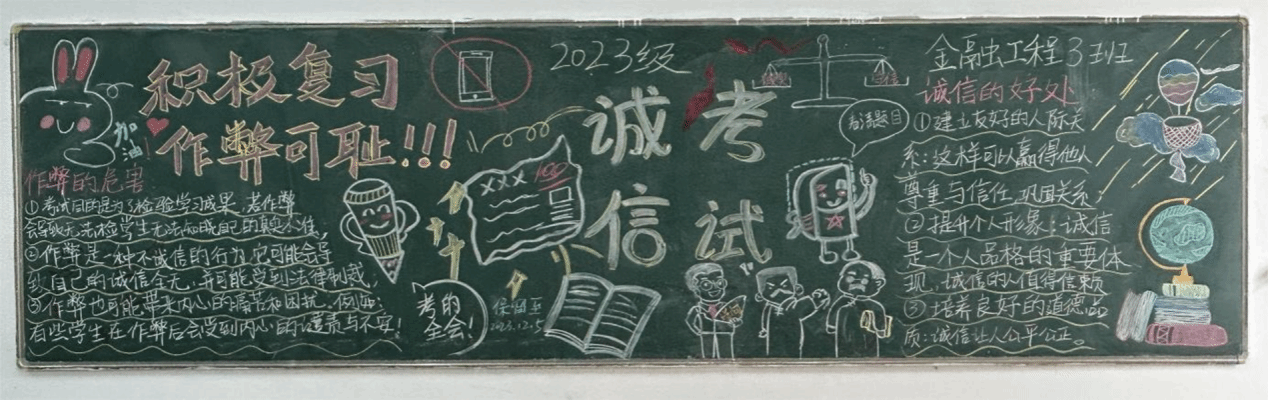 积极复习
作弊可耻!!!
加油
作弊的危害
①考试目的是为了检验学习成果,若作弊
会导致无法检学生无法知晓自己的真实水准,
②作弊是一种不诚信的行为,它可能会导
致自己的诚信全无,并可能受到法律制裁;
③作弊也可能带来内心的痛苦和困扰,例如,
有些学生在作弊后会受到内心的谴责与不安!
2023级
诚 考
信 试
XXX
100
考的全会!
保留至
2023.12.5
看清题目
诚信
金融工程3班
诚信的好处
①建立友好的人际关
系:这样可以赢得他人
尊重与信任,巩固关系;
②提升个人形象:诚信
是一个人品格的重要体
现,诚信的人值得信赖
③培养良好的道德品
质:诚信让人公平公正。